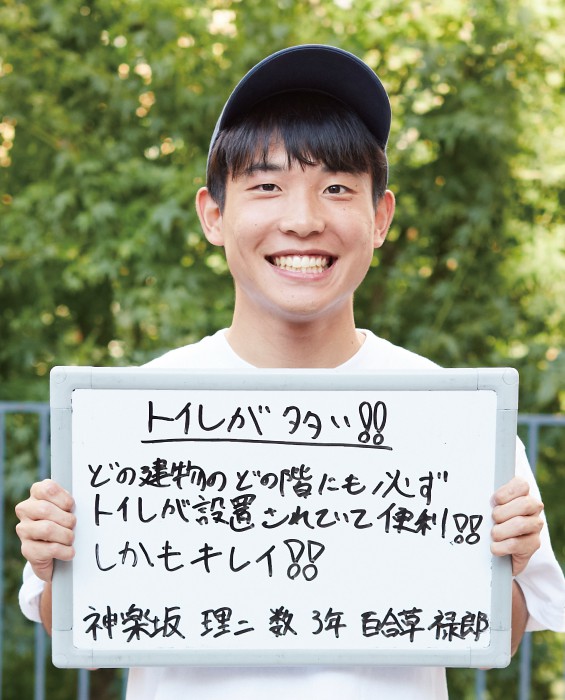 トイレが多い!!
どの建物のどの階にも必ず
トイレが設置されていて便利!!
しかもキレイ!!
神楽坂 理二 数 3年 百合草 禄郎